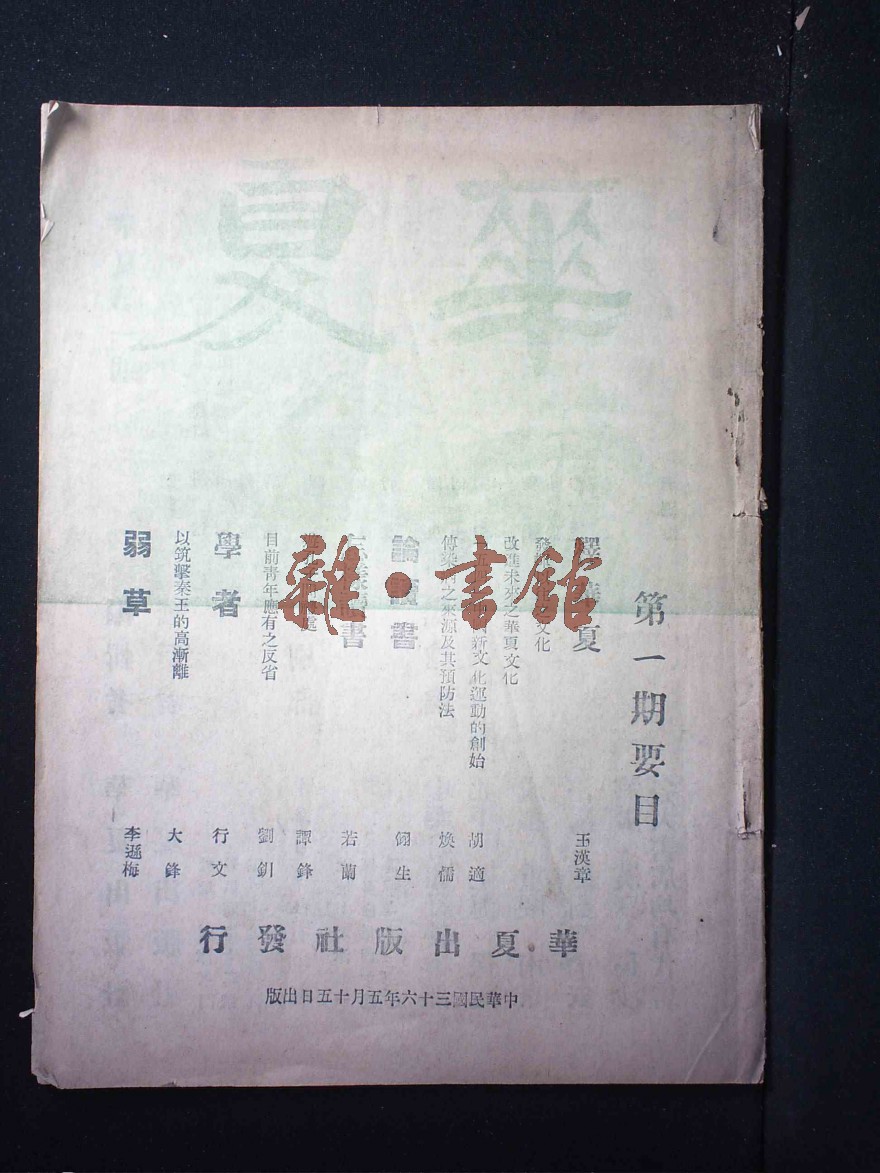 華夏
第一期要目
釋華夏 王漢章
發 文化
改進未來之華夏文化
新文化運動的創始 胡適
傳染病之來源及其預防法 煥儒
論讀書 翎生
書 若蘭
處 譚鋒
目前青年應有之反省 劉釧
學者 行文
以筑擊秦王的高漸離 大鋒
弱草 李遜梅
華夏出版社發行
中華民國三十六年五月十五日出版
雜·書館